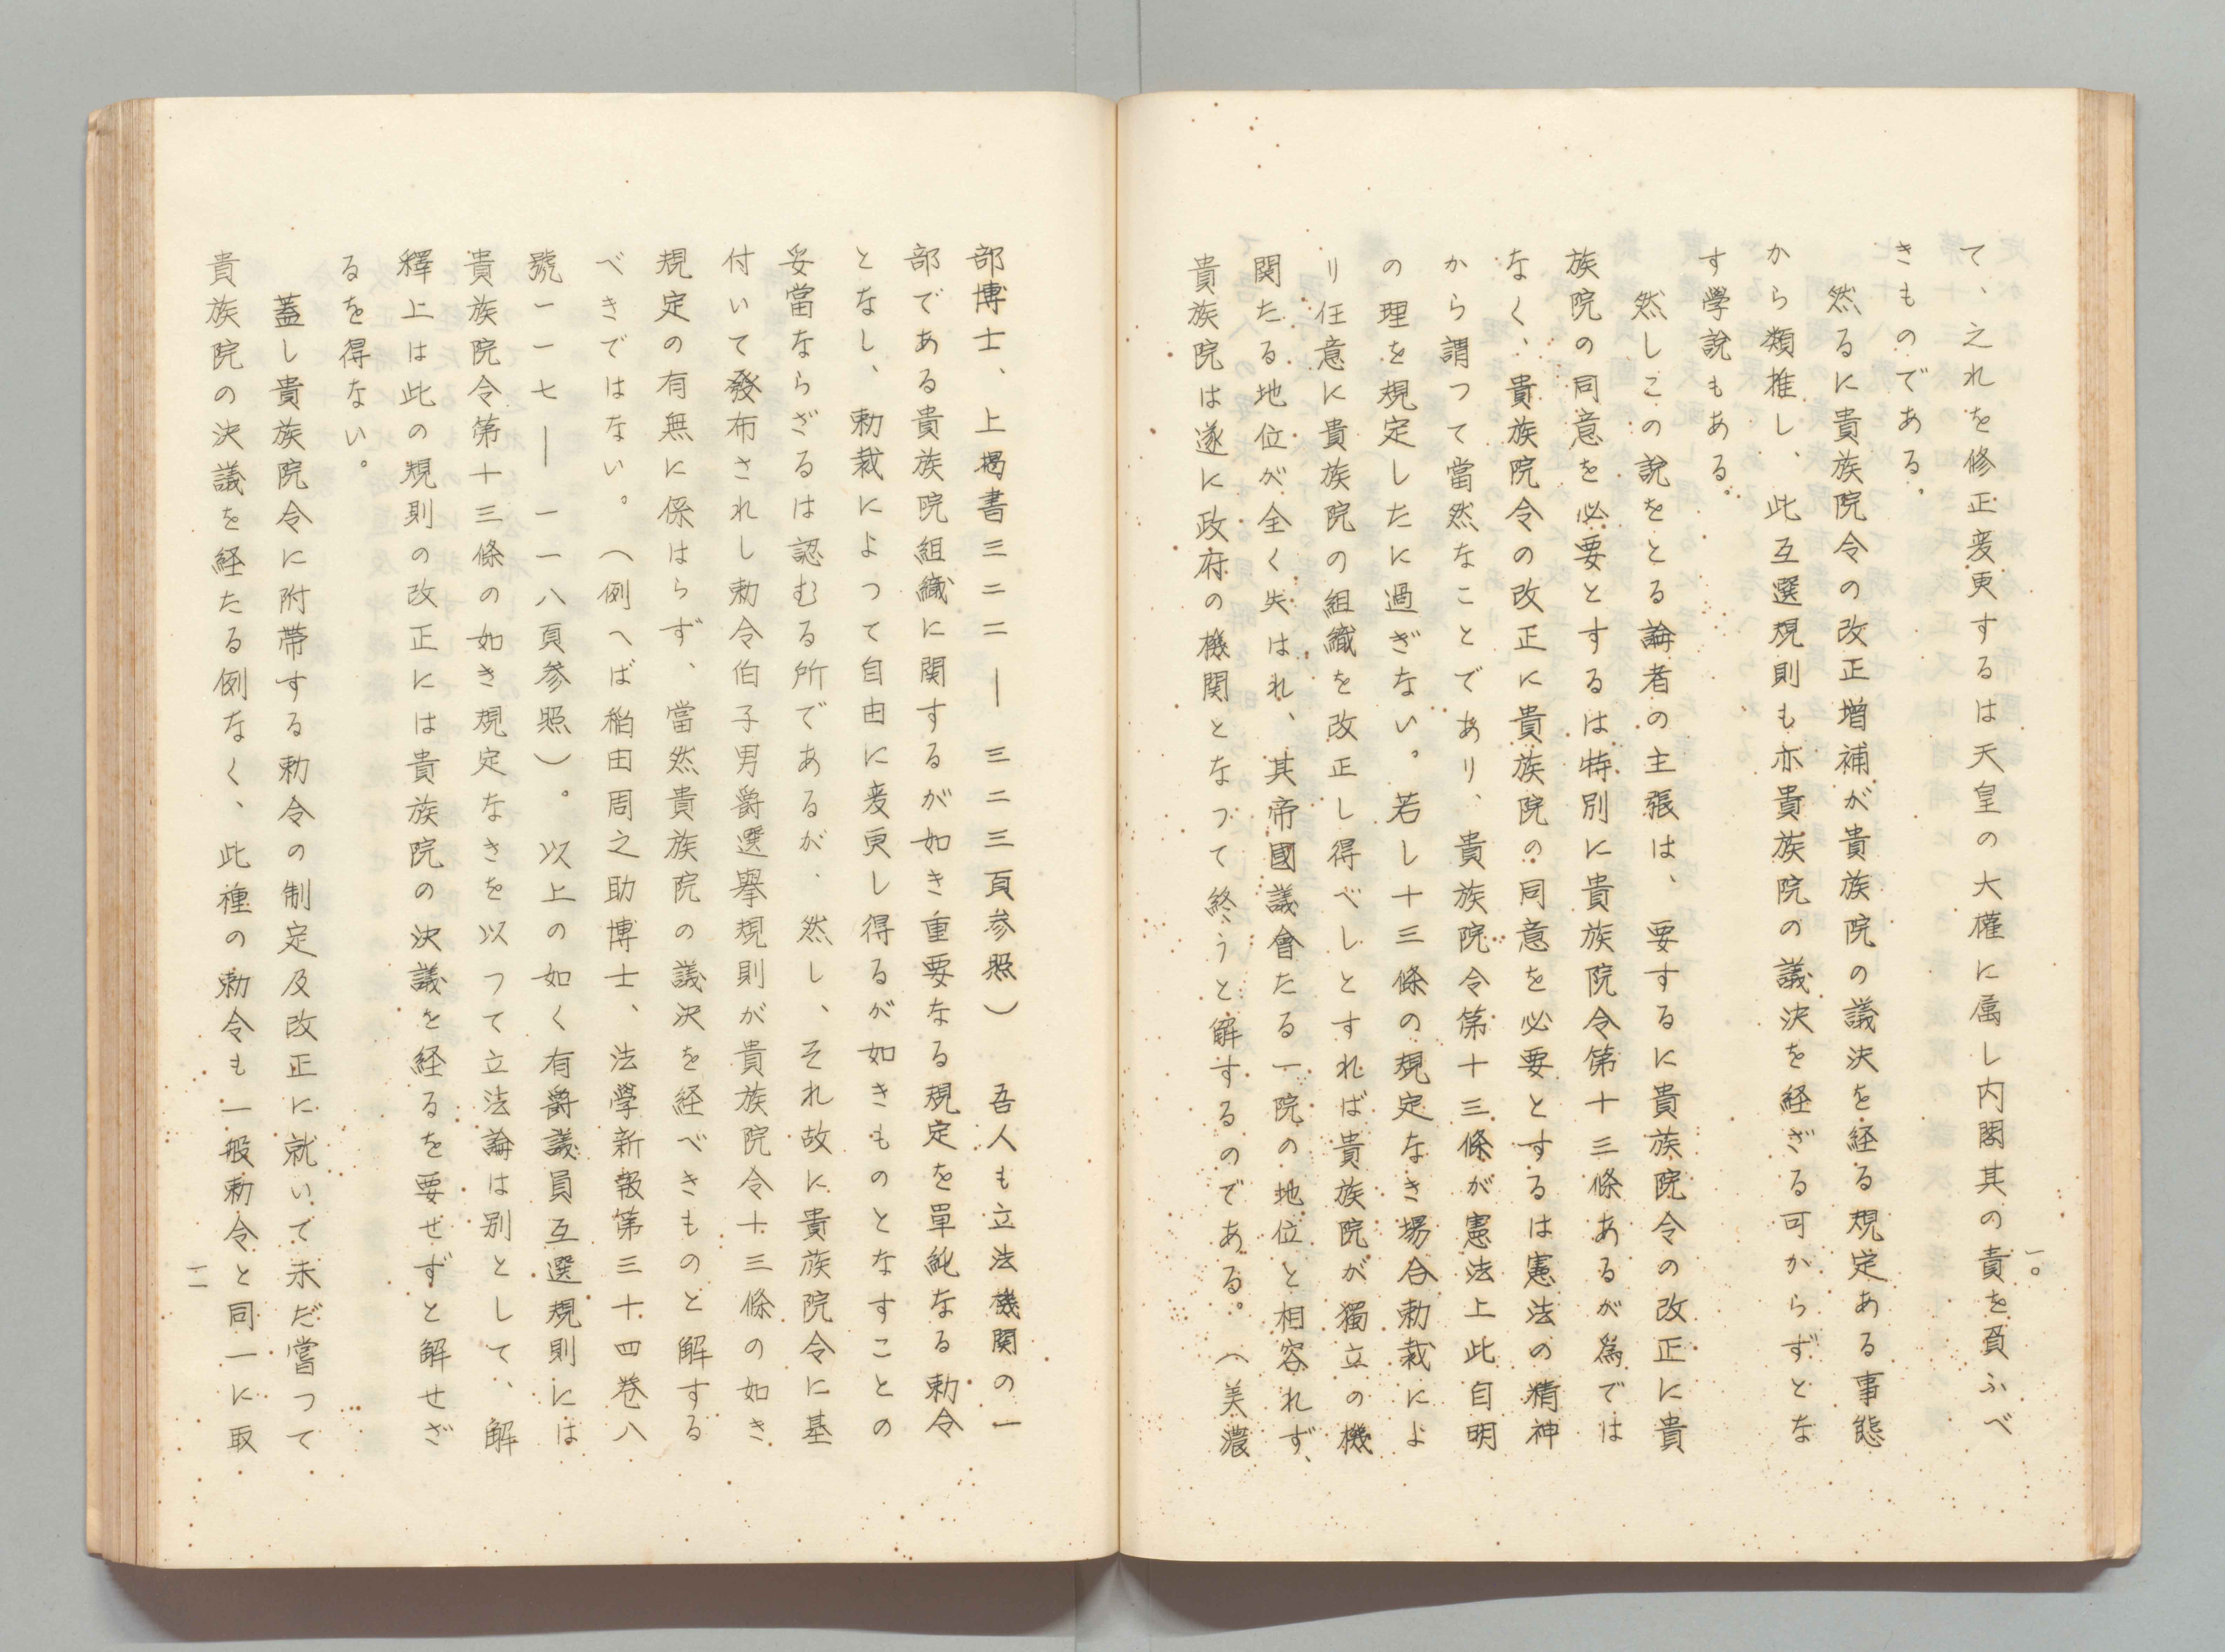 て、之れを修正変更するは天皇の大権に属し内閣其の責を負ふべ
きものである。
然るに貴族院令の改正増補が貴族院の議決を経る規定ある事態
から類推し、此互選規則も亦貴族院の議決を経ざる可からずとな
す學説もある。
然しこの説をとる論者の主張は、要するに貴族院令の改正に貴
族院の同意を必要とするは特別に貴族院令第十三條あるが爲では
なく、貴族院令の改正に貴族院の同意を必要とするは憲法の精神
から謂つて當然なことであり、貴族院令第十三條が憲法上此自明
の理を規定したに過ぎない。若し十三條の規定なき場合勅裁によ
り任意に貴族院の組織を改正し得べしとすれば貴族院が獨立の機
関たる地位が全く失はれ、其帝國議會たる一院の地位と相容れず、
貴族院は遂に政府の機関となつて終うと解するのである。（美濃
一〇
部博士、上掲書三二二―三二三頁参照）吾人も立法機関の一
部である貴族院組織に関するが如き重要なる規定を單純なる勅令
となし、勅裁によつて自由に変更し得るが如きものとなすことの
妥當ならざるは認むる所であるが、然し、それ故に貴族院令に基
付いて發布されし勅令伯子男爵選擧規則が貴族院令十三條の如き
規定の有無に係はらず、當然貴族院の議決を経べきものと解する
べきではない。（例へば稲田周之助博士、法學新報第三十四巻八
號一一七―一一八頁参照）。以上の如く有爵議員互選規則には
貴族院令第十三條の如き規定なきを以つて立法論は別として、解
釋上は此の規則の改正には貴族院の決議を経るを要せずと解せざ
るを得ない。
蓋し貴族院令に附帯する勅令の制定及改正に就いで未だ嘗つて
貴族院の決議を経たる例なく、此種の勅令も一般勅令と同一に取
一一